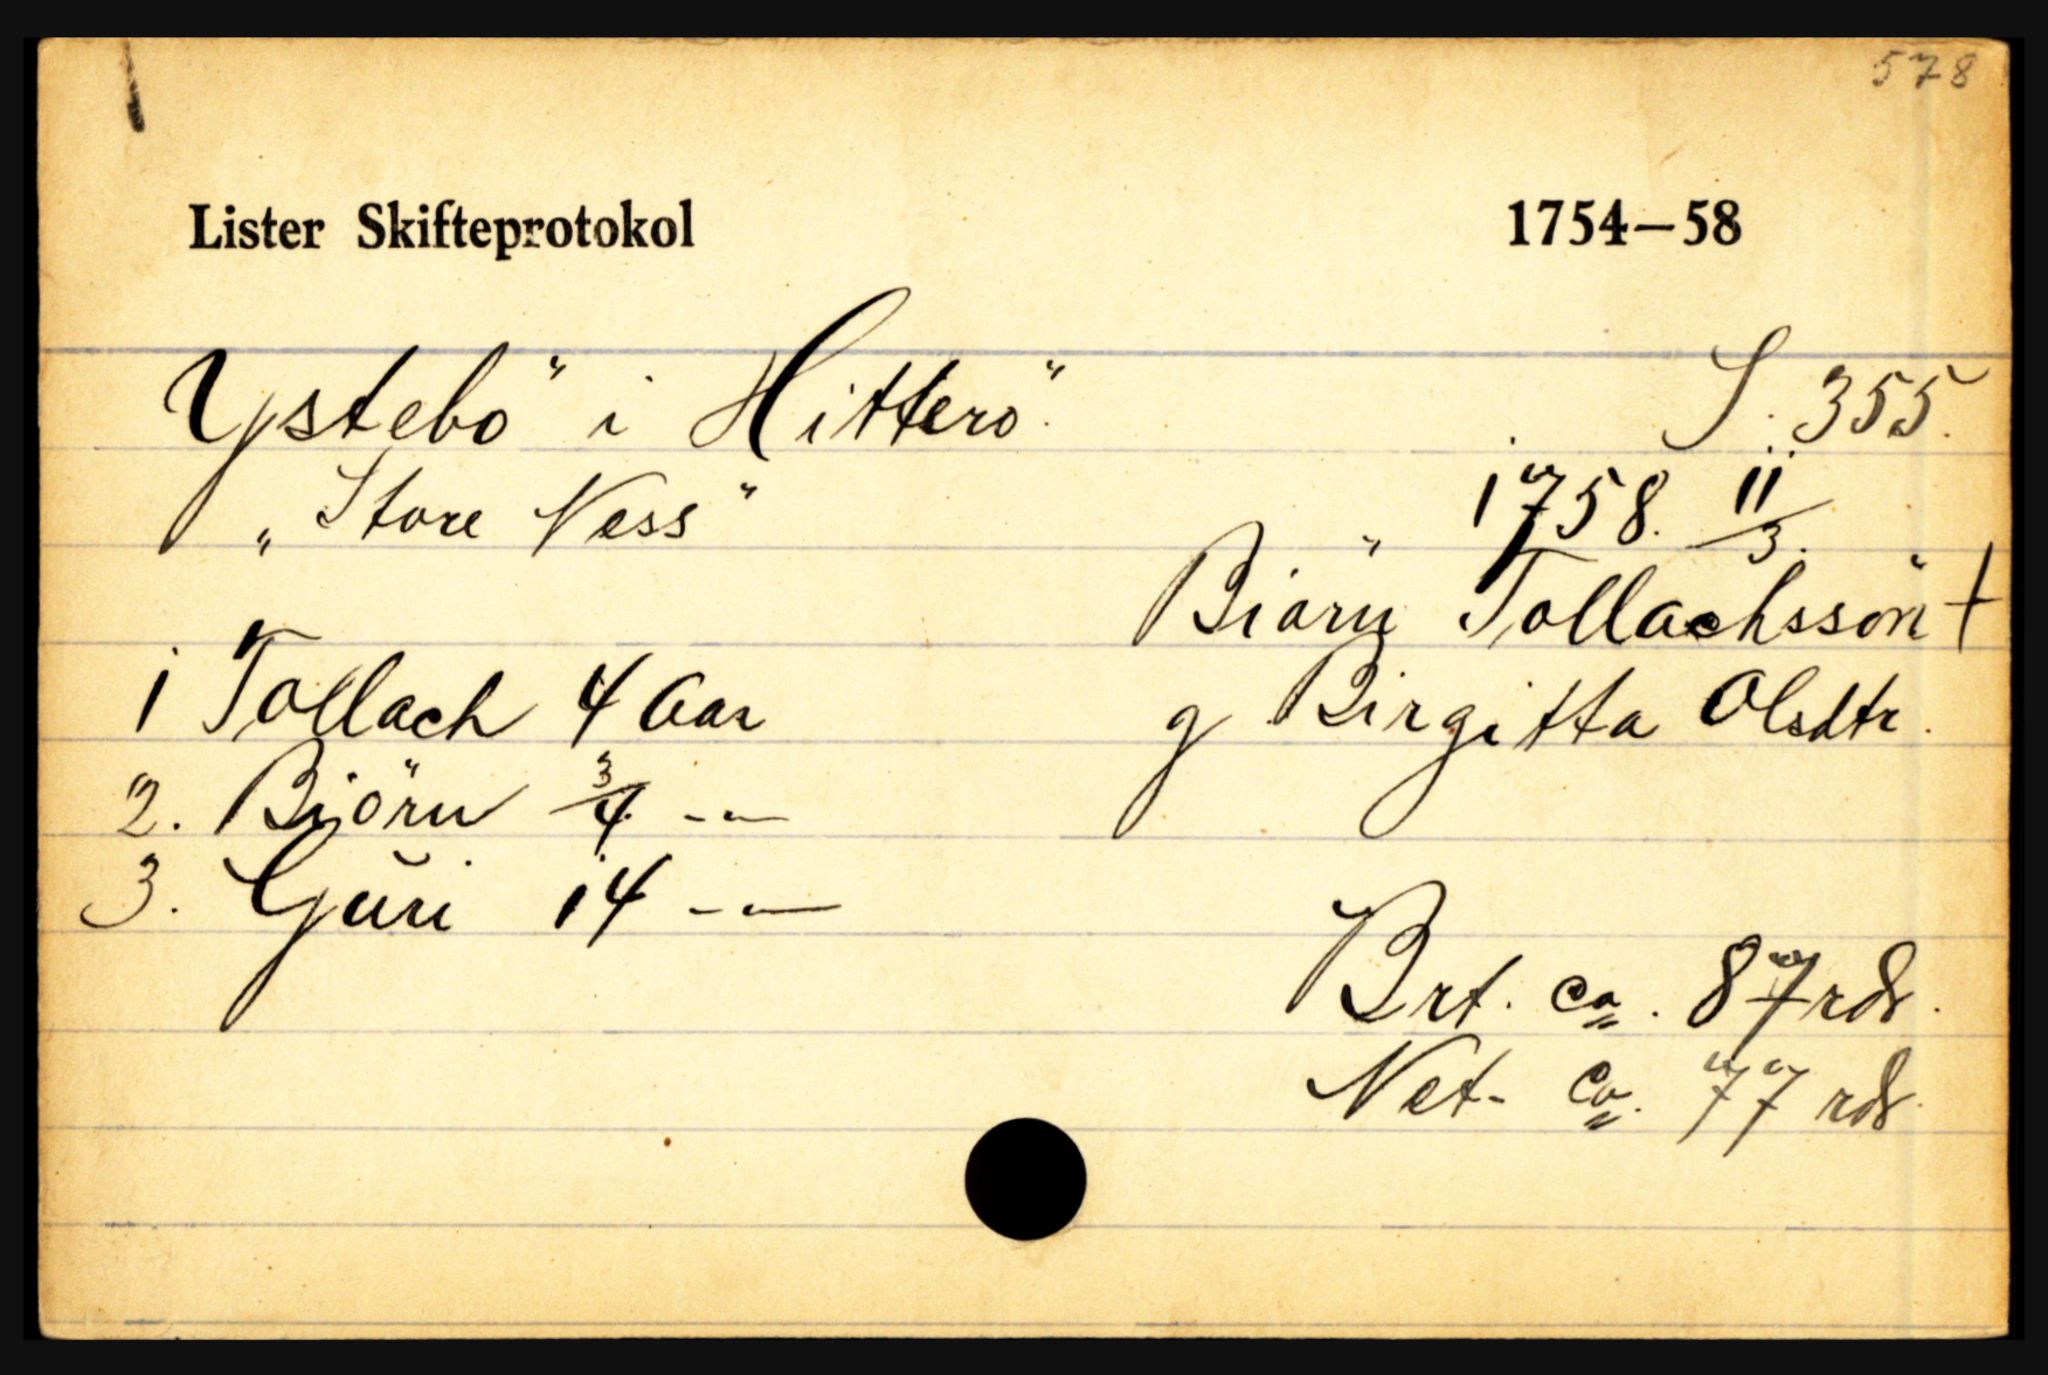 578
Lister Skifteprotokol 1754–58
Ystebö i Hitterö. S. 355.
"Store Ness" 1758. 11/3.
Biörn Tollachssön †
1 Tollach 4 Aar g Birgitta Olsdtr.
2. Björn 3/4 -"-
3. Guri 14 -"-
Brt. ca. 87 rdr.
Net. ca. 77 rdr.